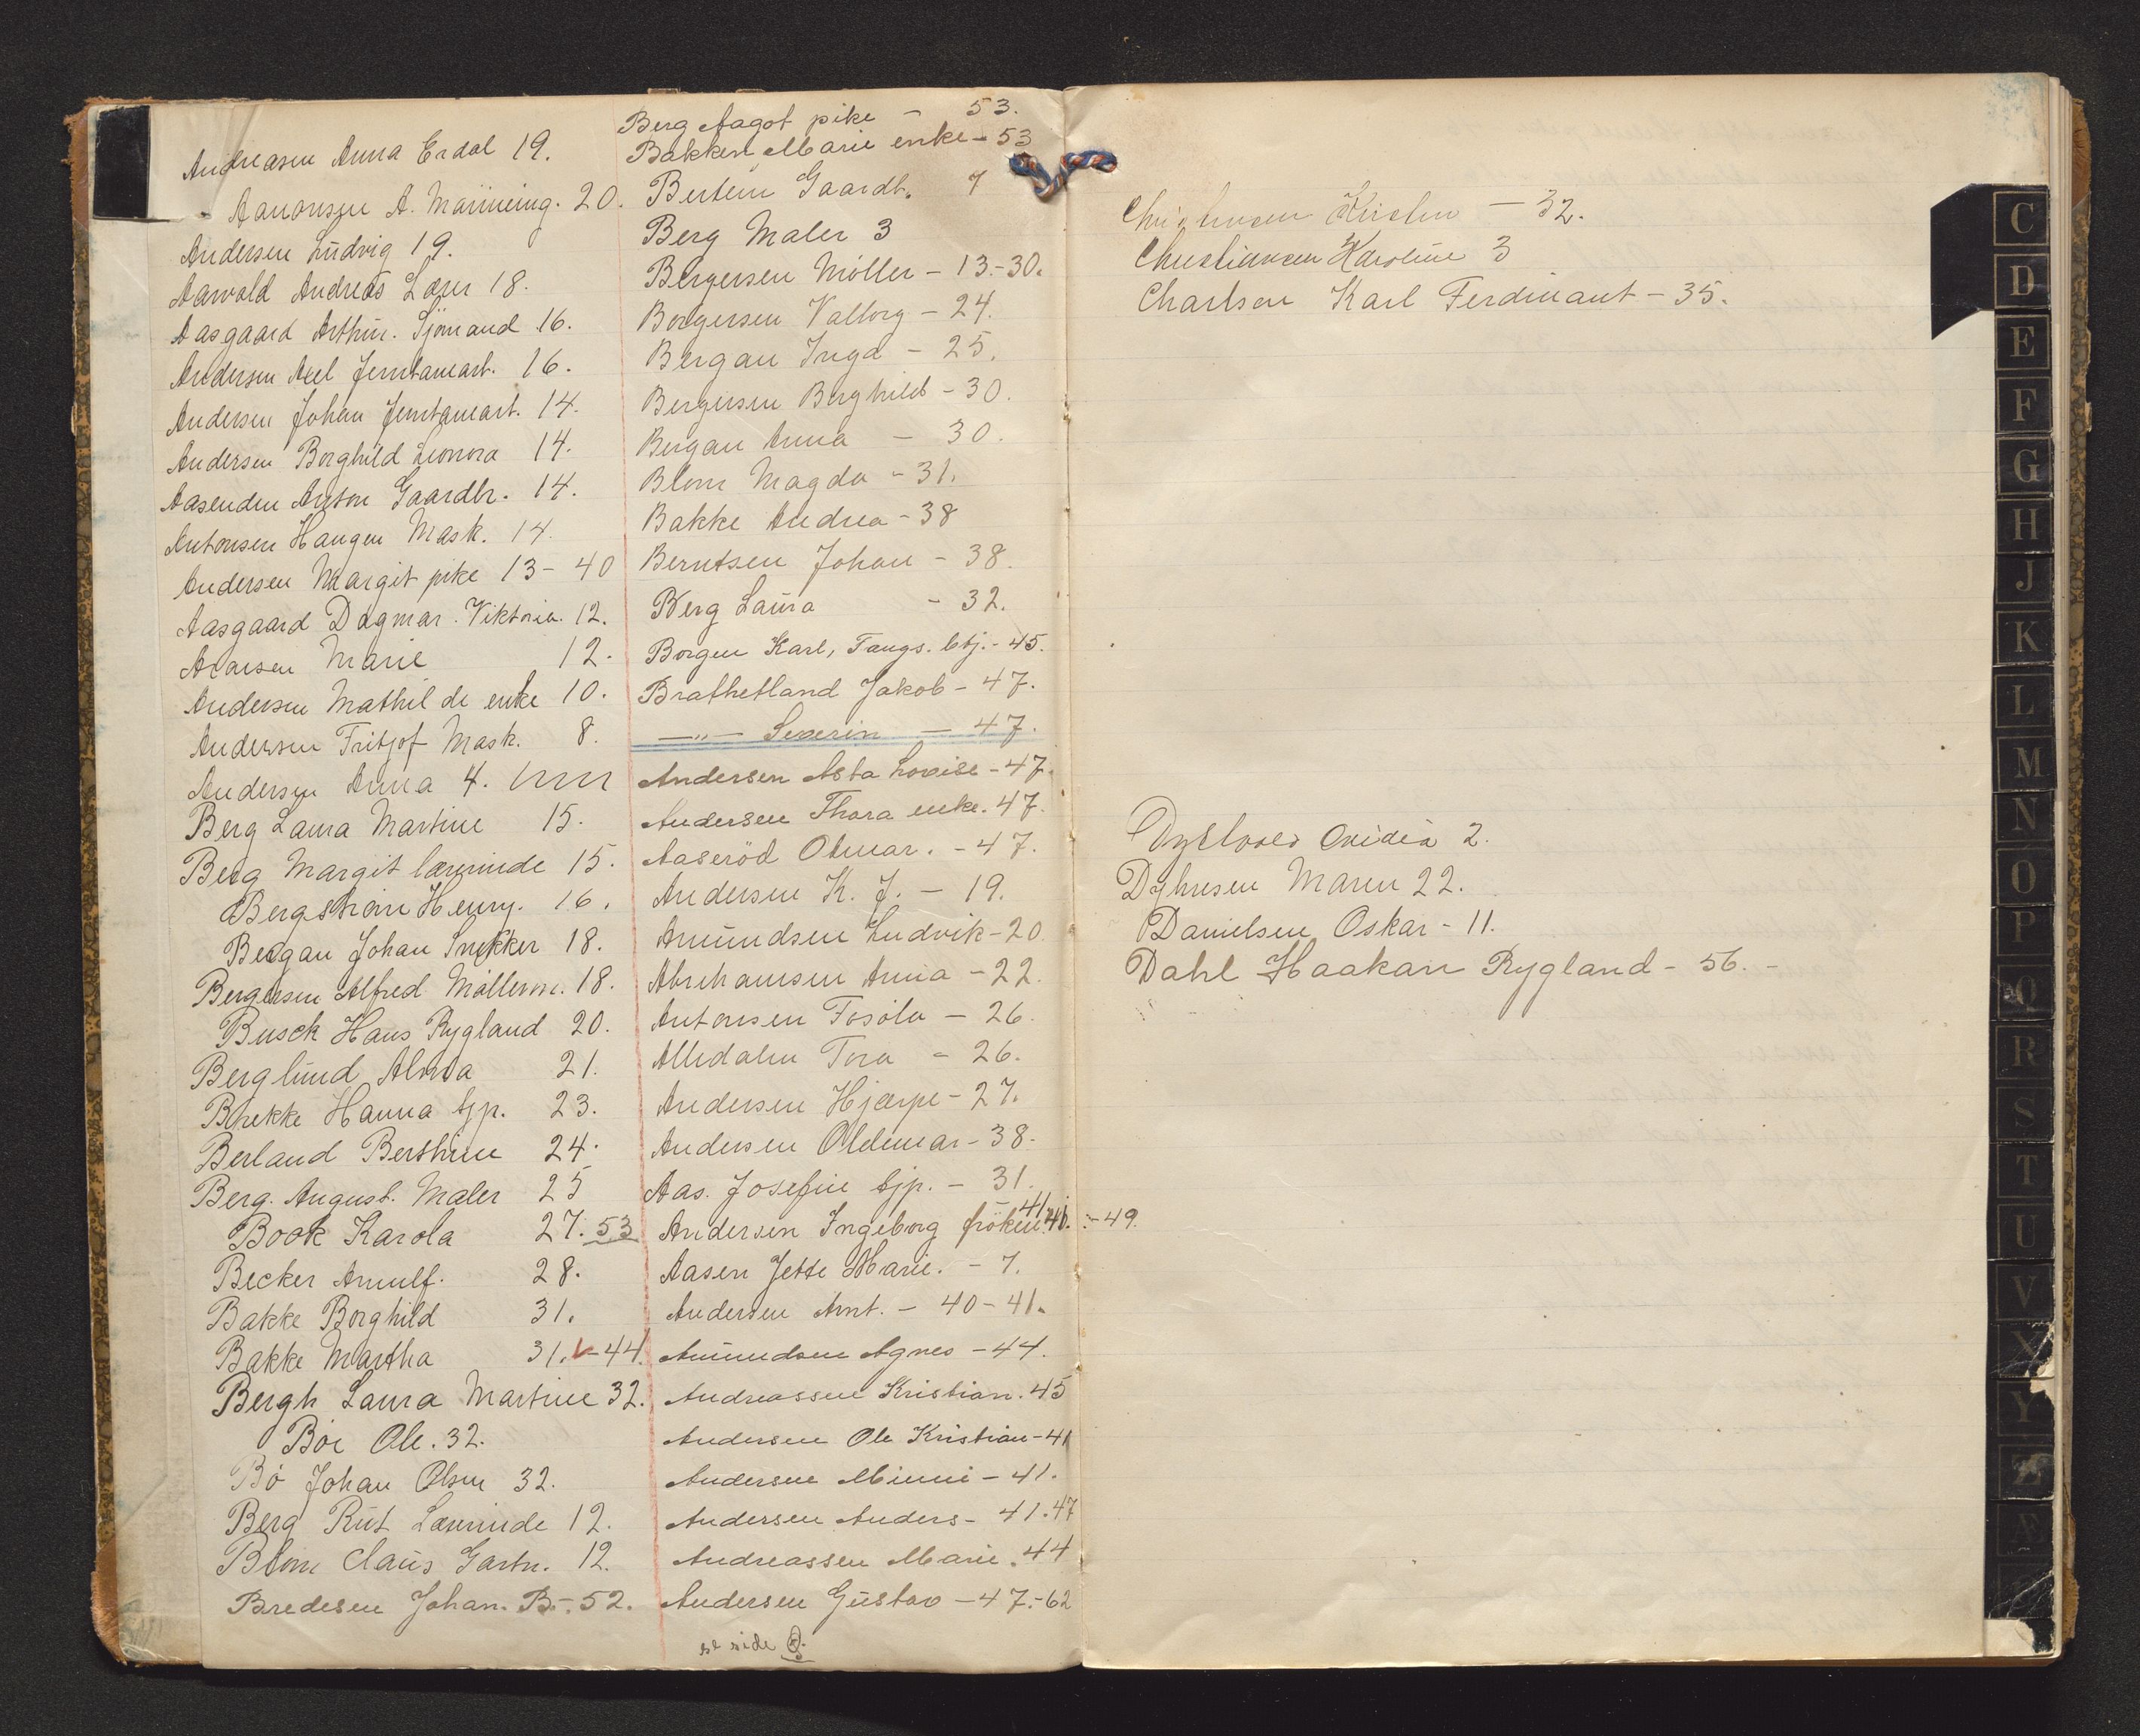 Andreasen Anna Erdal 19.
Aanonsen A. 20.
Andersen Ludvig 19.
Aarvold Andreas Lærer 18.
Aasgaard Arthur. Sjömand 16.
Andersen Axel 16.
Andersen Johan 14.
Andersen Borghild Leonora 14.
Aasenden Anton Gaardbr. 14.
Antonsen Haugen Mask. 14.
Andersen Margit pike 13 - 40
Aasgaard Dagmar. Viktoria. 12.
Marie 12.
Andersen Mathilde enke 10.
Andersen Fritjof Mask. 8.
Andersen Anna 4.
Berg Laura Martine 15.
Berg Margit lærerinde 15.
Henry. 16.
Bergan Johan Snekker 18.
Bergersen Alfred Möllerm. 18.
Busck Hans Rygland 20.
Berglund Alma 21.
Brekke Hanna tjp. 23.
Berland 24.
Berg. August. Maler 25
Book Karola 27. 53
Becker Arnulf. 28.
Bakke Borghild 31.
Bakke Martha 31. - 44.
Bergh Laura Martine 32.
Böe Ole. 32.
Bö Johan Olsen 32.
Berg Rut Lærerinde 12.
Blom Claus Gartn. 12.
Bredesen Johan. B. - 52.
Berg Aagot pike - 53.
Bakken Marie enke - 53
Gaardb. 7
Berg Maler 3
Bergersen Möller - 13.-30.
Borgersen Valborg - 24.
Bergan Inga - 25.
Bergersen Borghild - 30.
Bergan Anna - 30.
Blom Magda - 31.
Bakke Andrea - 38
Berntsen Johan - 38.
Berg Laura - 32.
Borgen Karl, Fængs. btj. - 45.
Brathetland Jakob - 47.
—"— Severin — 47.
Andersen Asta Lovise - 47.
Andersen Thora enke. 47.
Aaseröd Otmar. - 47.
Andersen K. J. - 19.
Amundsen Ludvik - 20
Abrahamsen Anna - 22.
Antonsen - 26.
Tora - 26.
Andersen - 27.
Andersen - 38.
Aas. Josefine tjp. - 31.
Andersen Ingeborg fröken 41. 40. - 49.
Aasen Jette Marie. - 7.
Andersen Arnt. - 40 - 41.
Amundsen Agnes - 44.
Andreassen Kristian. 45
Andersen Ole Kristian - 41
Andersen Minni - 41.
Andersen Anders - 41.47
Andreassen Marie. 44
Andersen Gustav - 47.-62
se side
- 32.
Christiansen Karoline 3
Charlson Karl Ferdinant - 35.
Ovidia 2.
Maren 22.
Danielsen Oskar - 11.
Dahl Haakan Rygland - 56. -
C
D
E
F
G
H
J
K
L
M
N
O
P
Q
R
S
T
U
V
X
Y
Z
Æ